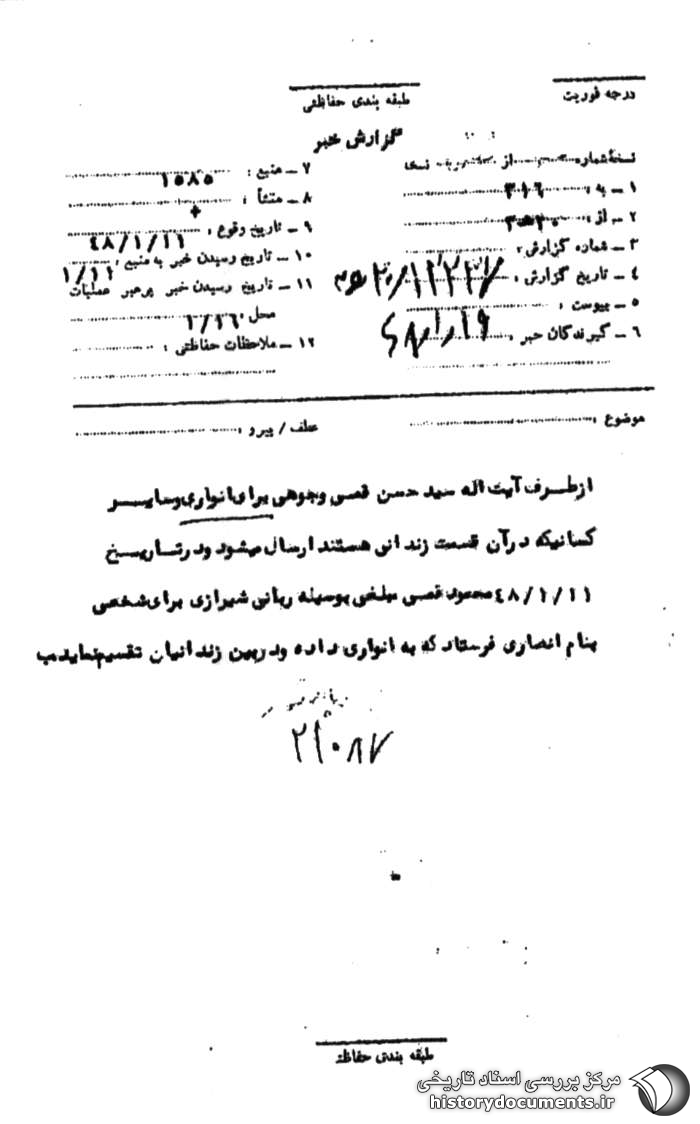 درجه فوریت
طبقه بندی حفاظتی
گزارش خبر
نسخهٔ شماره از نسخه
۱ ــ به : ۳۱۶
۲ ــ از :
۳ ــ شماره گزارش :
۴ ــ تاریخ گزارش : ۴۸/۱/۱۹
۵ ــ پیوست :
۶ ــ گیرندگان خبر :
۷ ــ منبع : ۱۵۸۵
۸ ــ منشأ :
۹ ــ تاریخ وقوع : ۴۸/۱/۱۱
۱۰ ــ تاریخ رسیدن خبر به منبع : ۱/۱۱
۱۱ ــ تاریخ رسیدن خبر برهبر عملیات
محل : ۱/۱۶
۱۲ ــ ملاحظات حفاظتی :
موضوع :
عطف / پیرو :
ازطرف آیت اله سید حسن قمی وجوهی برای انواری وسایر
کسانیکه درآن قسمت زندانی هستند ارسال میشود ودرتاریخ
۴۸/۱/۱۱ محمود قمی مبلغی بوسیله ربانی شیرازی برای شخصی
بنام انصاری فرستاد که به انواری داده ودربین زندانیان تقسیم نماید ب
۲۱۰۸۷
طبقه بندی حفاظتی
مرکز بررسی اسناد تاریخی
historydocuments.ir